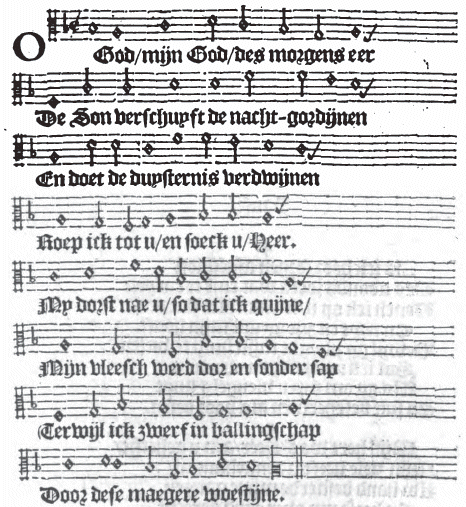 O God/mijn God/des morgens eer
De Son verschuyft de nacht-gordijnen
En doet de duysternis verdwijnen
Roep ick tot u/en soeck u/Heer.
My dorst nae u/so dat ick quijne/
Mijn vleesch werd dor en sonder sap
Terwijl ick zwerf in ballingschap
Door dese maegere woestijne.